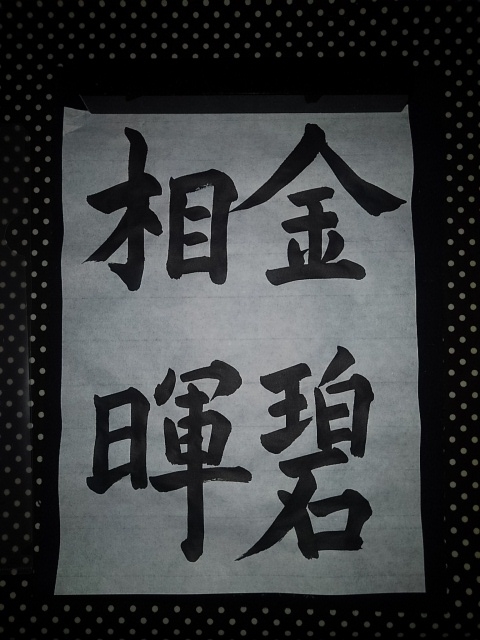 金碧
相暉